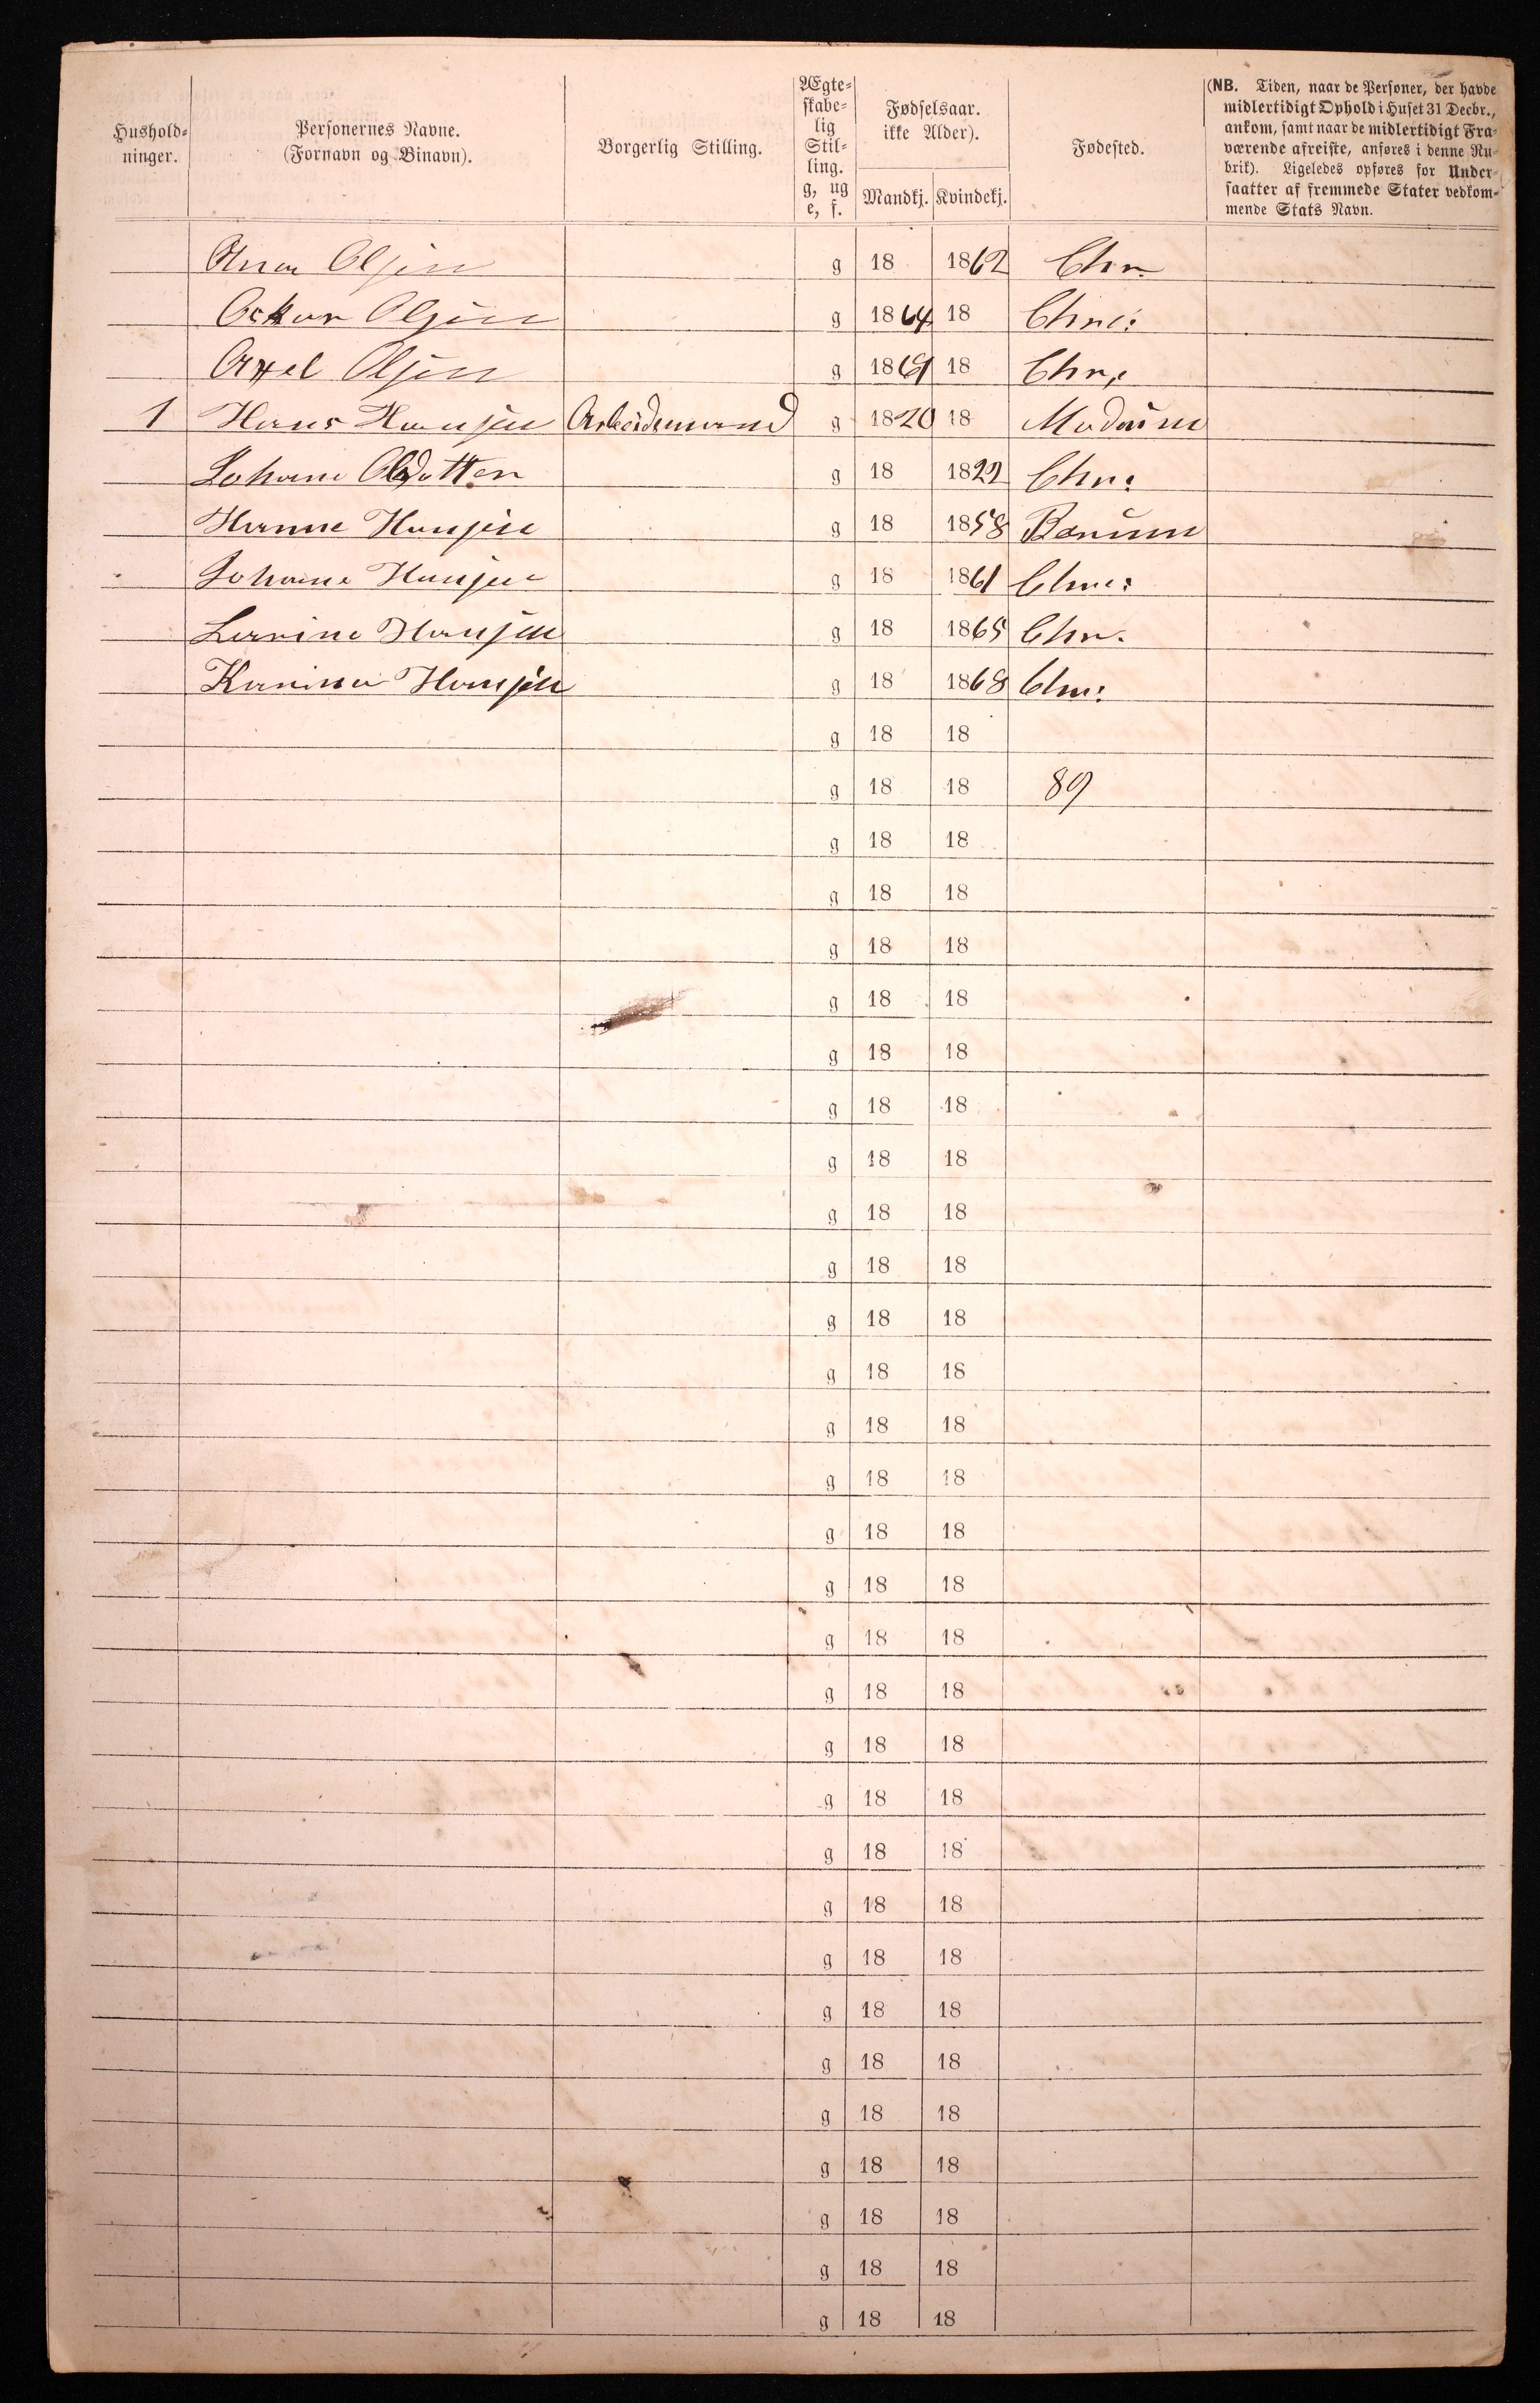 Hushold-
ninger.
Personernes Navne.
(Fornavn og Binavn).
Borgerlig Stilling.
Ægte-
skabe-
lig
Stil-
ling.
g, ug
e, f.
Fødselsaar.
ikke Alder).
Mandkj. Kvindekj.
Fødested.
(NB. Tiden, naar de Personer, der havde
midlertidigt Ophold i Huset 31 Decbr.,
ankom, samt naar de midlertidigt Fra-
værende afreiste, anføres i denne Ru-
brik). Ligeledes opføres for Under-
saatter af fremmede Stater vedkom-
mende Stats Navn.
Anna Olsen g 18 1862 Chr.
Oskar Olsen g 1864 18 Chr:
Axel Olsen g 1869 18 Chr.
1 Hans Hansen Arbeidsmand g 1820 18 Modum
Johane Olsdatter g 18 1822 Chr:
Hanne Hansen g 18 1858 Bærum
Johane Hansen g 18 1861 Chr:
Lavine Hansen g 18 1865 Chr.
Karina Hansen g 18 1868 Chr:
g 18 18
g 18 18 89
g 18 18
g 18 18
g 18 18
g 18 18
g 18 18
g 18 18
g 18 18
g 18 18
g 18 18
g 18 18
g 18 18
g 18 18
g 18 18
g 18 18
g 18 18
g 18 18
g 18 18
g 18 18
g 18 18
g 18 18
g 18 18
g 18 18
g 18 18
g 18 18
g 18 18
g 18 18
g 18 18
g 18 18
g 18 18